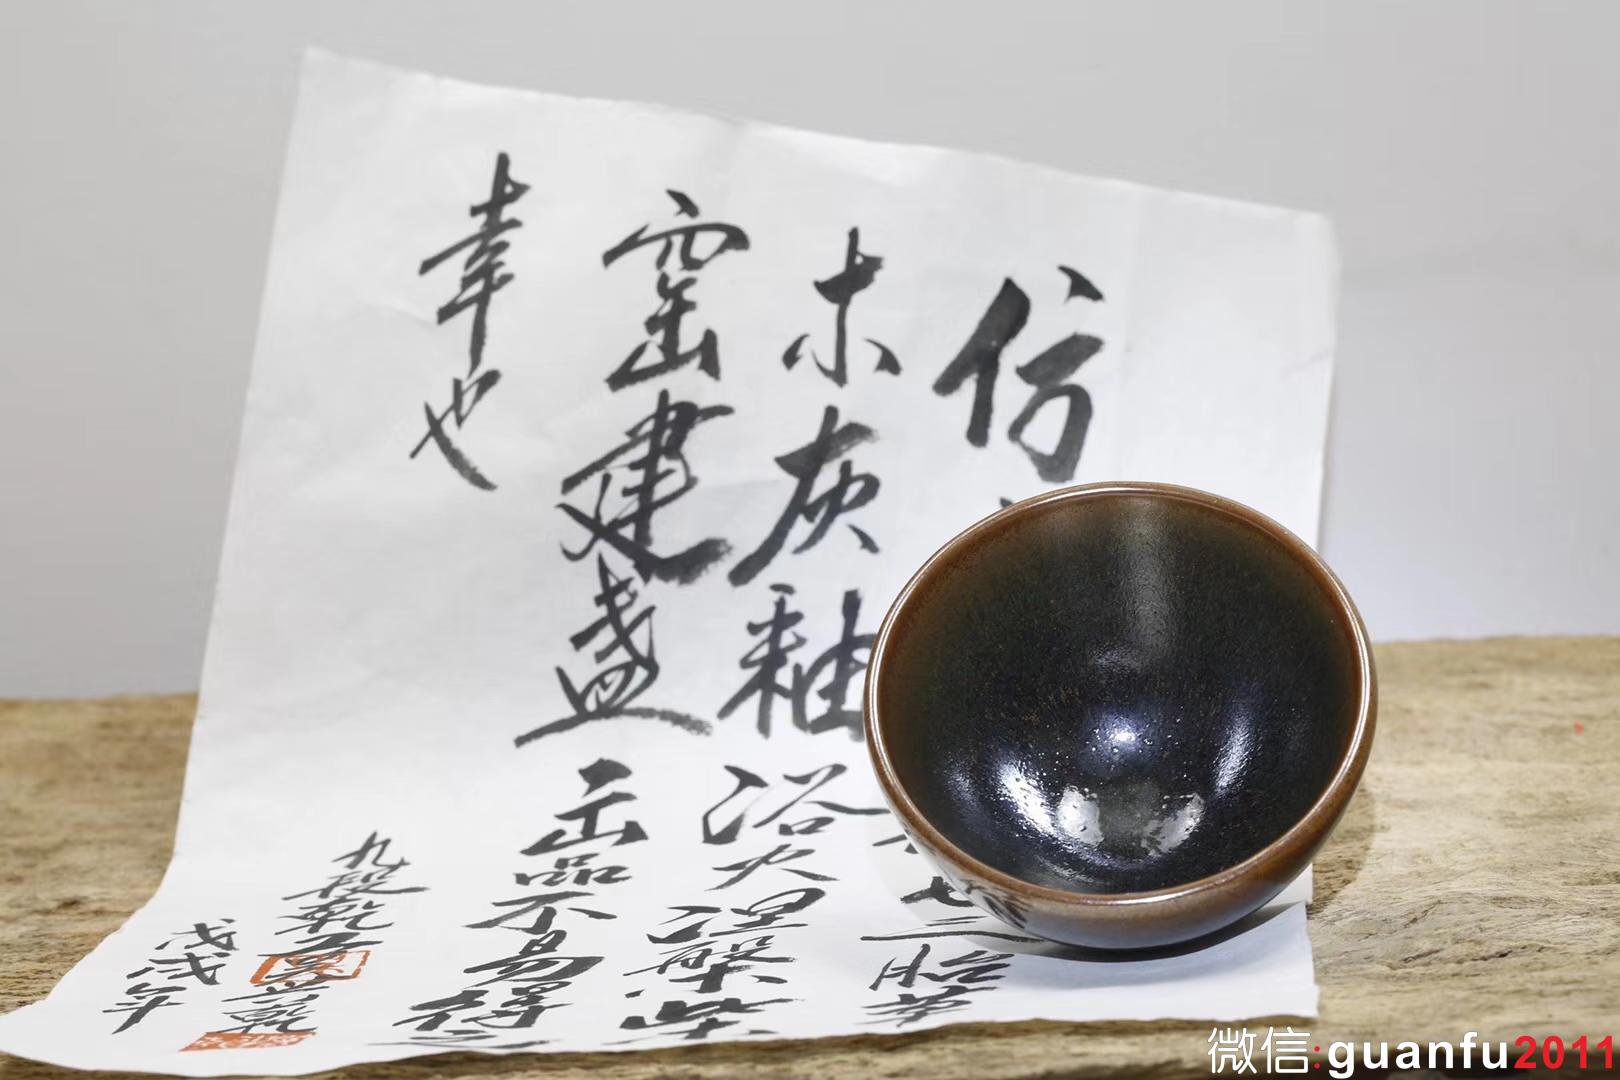 仿
七三胎
木灰釉浴火涅槃柴
窑建盏出品不易得之
幸也
九段乾
戊戌年
微信:guanfu2011